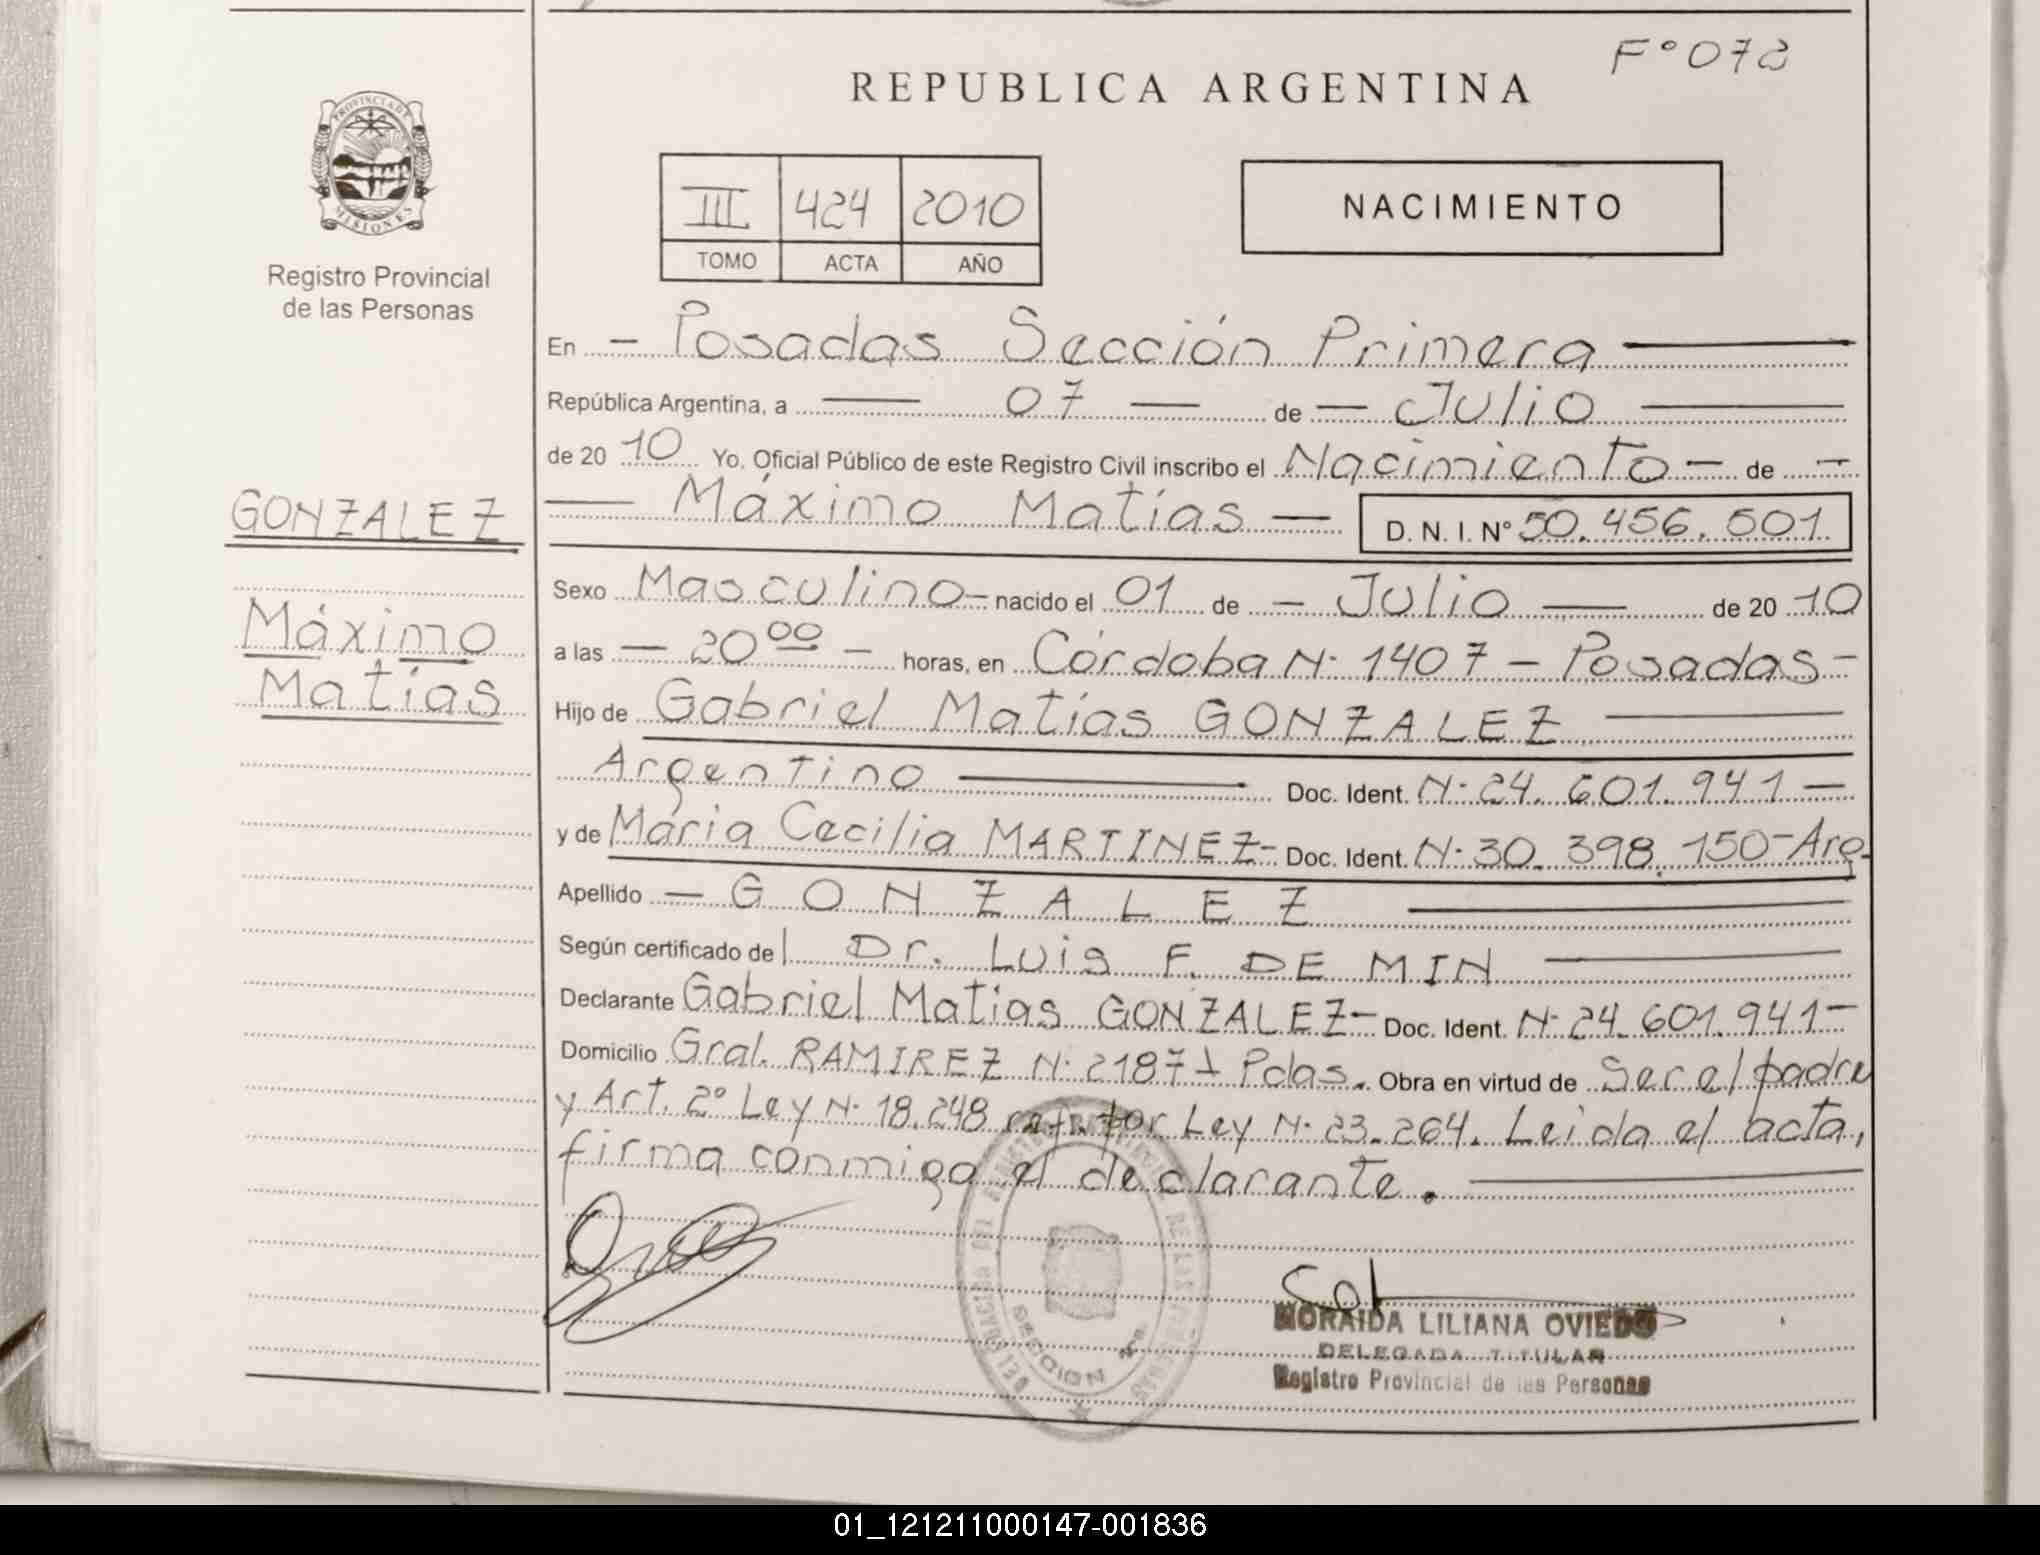 F° 078
REPUBLICA ARGENTINA
PROVINCIA DE
MISIONES
Registro Provincial
de las Personas
III 424 2010
TOMO ACTA AÑO
NACIMIENTO
En - Posadas Sección Primera
República Argentina, a 07 de Julio
de 2010 Yo, Oficial Público de este Registro Civil inscribo el Nacimiento de
Máximo Matías D. N. I. N° 50.456.501
GONZALEZ
Máximo
Matías
Sexo Masculino - nacido el 01 de - Julio de 2010
a las - 20 00 - horas, en Córdoba N· 1407 - Posadas -
Hijo de Gabriel Matías GONZALEZ
Argentino Doc. Ident. N· 24.601.941 -
y de María Cecilia MARTINEZ - Doc. Ident. N· 30.398.150 - Arg.
Apellido - GONZALEZ
Según certificado del Dr. Luis F. DE MIN
Declarante Gabriel Matías GONZALEZ - Doc. Ident. N· 24.601.941 -
Domicilio Gral. RAMIREZ N· 2187 - Pdas. Obra en virtud de Ser el padre
y Art. 2° Ley N· 18.248 ref. por Ley N· 23.264. Leida el acta,
firma conmigo el declarante.
SECCION
MORAIDA LILIANA OVIEDO
DELEGADA TITULAR
Registro Provincial de las Personas
01_121211000147-001836